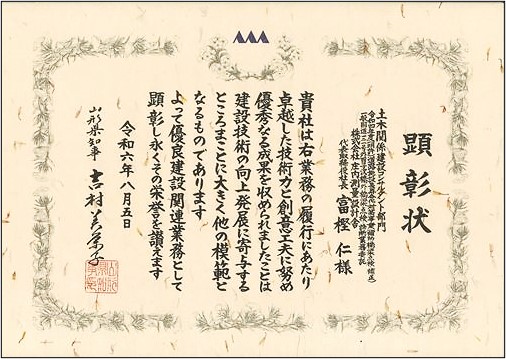 顕彰状
土木関係建設コンサルタント部門
株式会社庄内測量設計舎
代表取締役社長 富樫 仁 様
貴社は右業務の履行にあたり
卓越した技術力と創意工夫に努め
優秀なる成果を収められましたことは
建設技術の向上発展に寄与する
ところまことに大きく他の模範と
なるものであります
よって優良建設関連業務として
顕彰し永くその栄誉を讃えます
令和六年八月五日
山形県知事 吉村美栄子